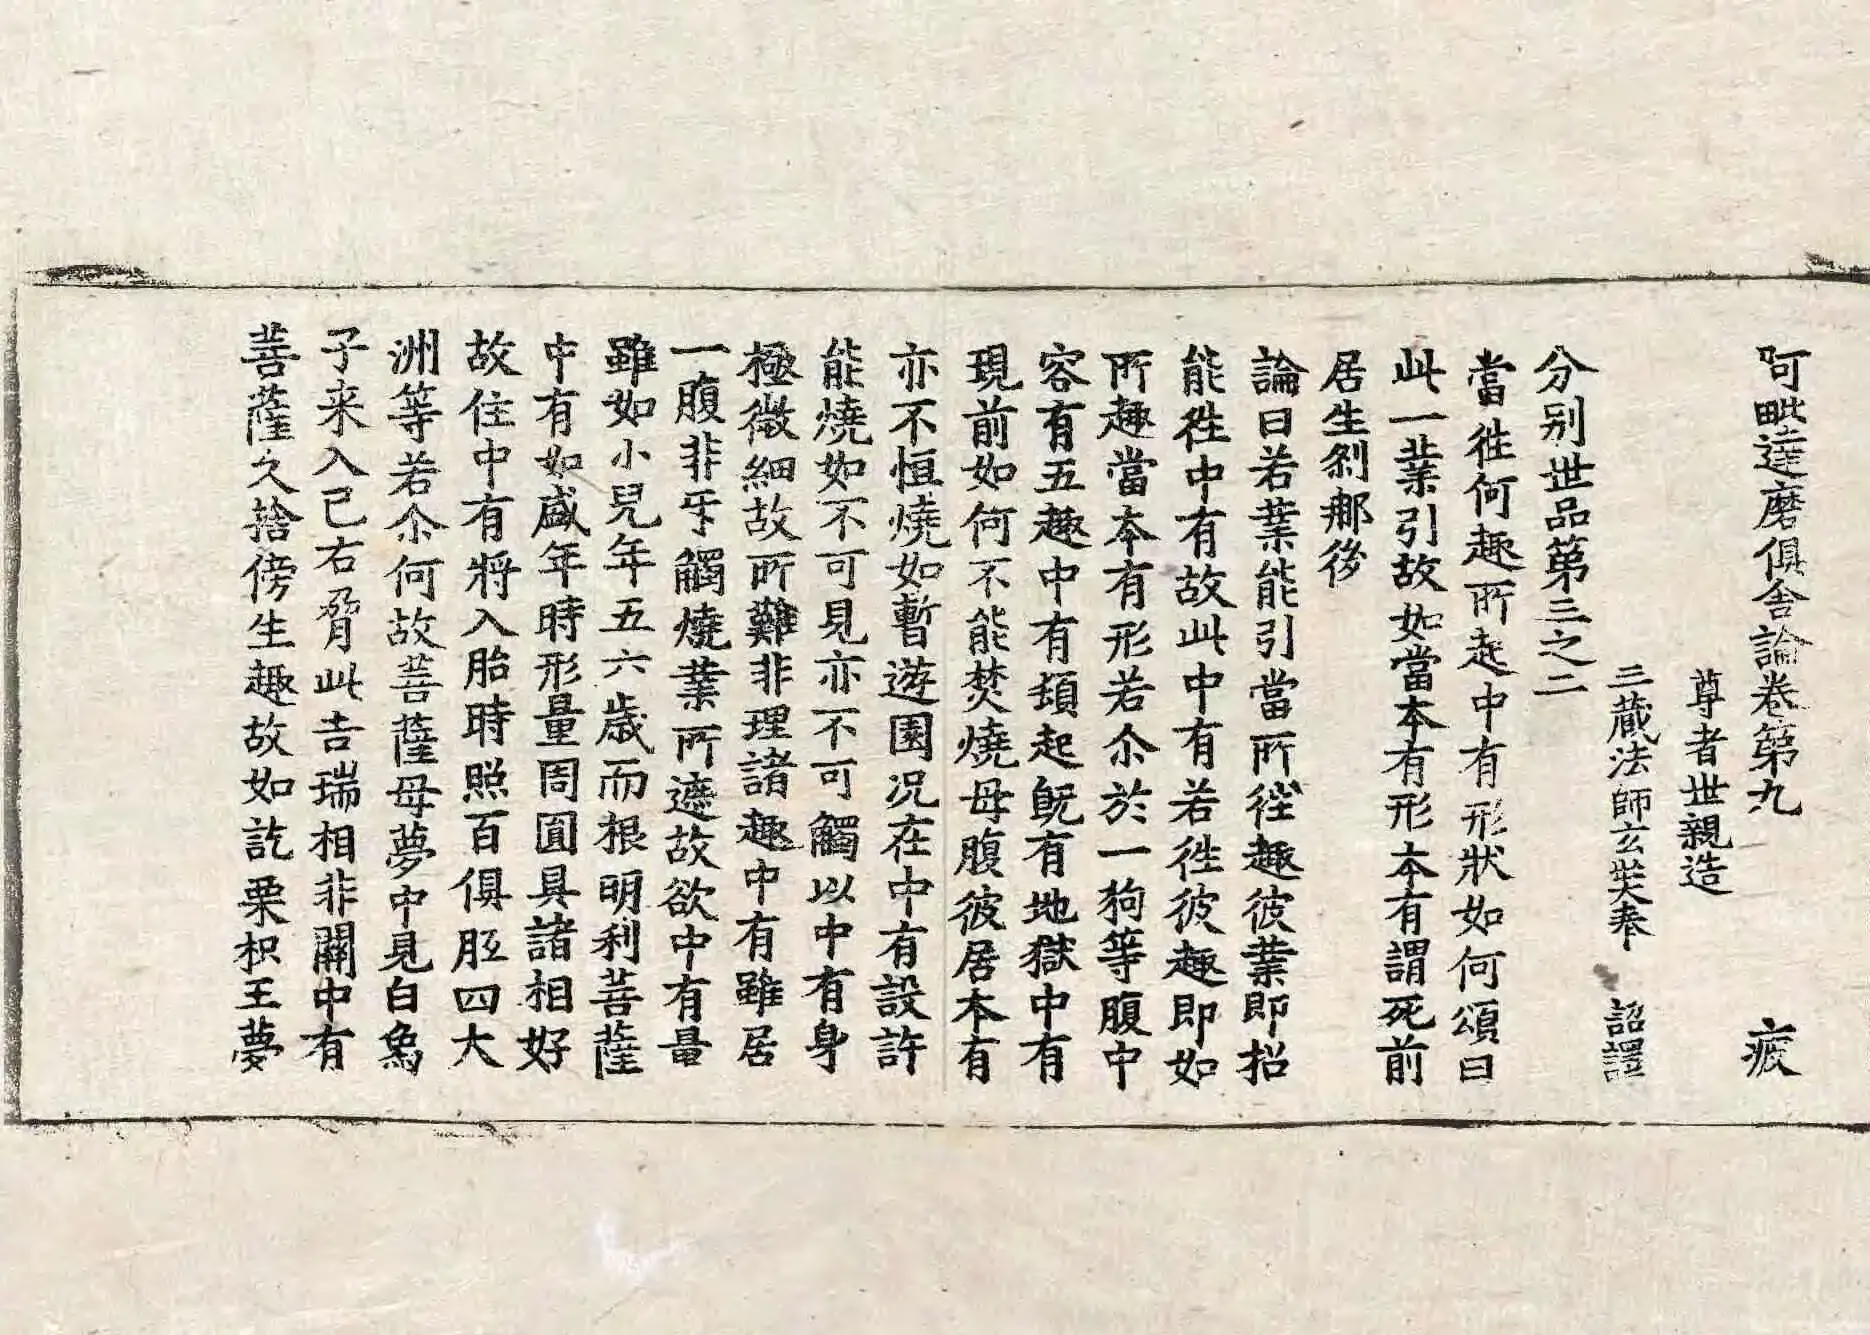 阿毗達磨俱舍論卷第九　疲
尊者世親造
三藏法師玄奘奉　詔譯
分别世品第三之二
當徃何趣所起中有形狀如何頌曰
此一業引故如當本有形本有謂死前
居生刹那後
論曰若業能引當所徃趣彼業即招
能徃中有故此中有若徃彼趣即如
所趣當本有形若尒於一狗等腹中
容有五趣中有頓起旣有地獄中有
現前如何不能焚燒母腹彼居本有
亦不恒燒如暫遊園况在中有設許
能燒如不可見亦不可觸以中有身
極微細故所難非理諸趣中有雖居
一腹非互觸燒業所遮故欲中有量
雖如小兒年五六歲而根明利菩薩
中有如盛年時形量周圓具諸相好
故住中有將入胎時照百俱胝四大
洲等若尒何故菩薩母夢中見白象
子来入己右脅此吉瑞相非關中有
菩薩久捨傍生趣故如訖栗枳王夢